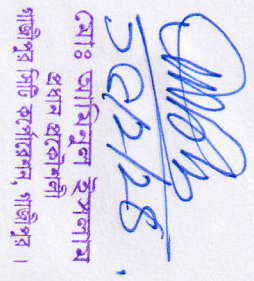 ১৫/২/২৪
মোঃ আমিনুল ইসলাম
প্রধান প্রকৌশলী
গাজীপুর সিটি কর্পোরেশন, গাজীপুর।